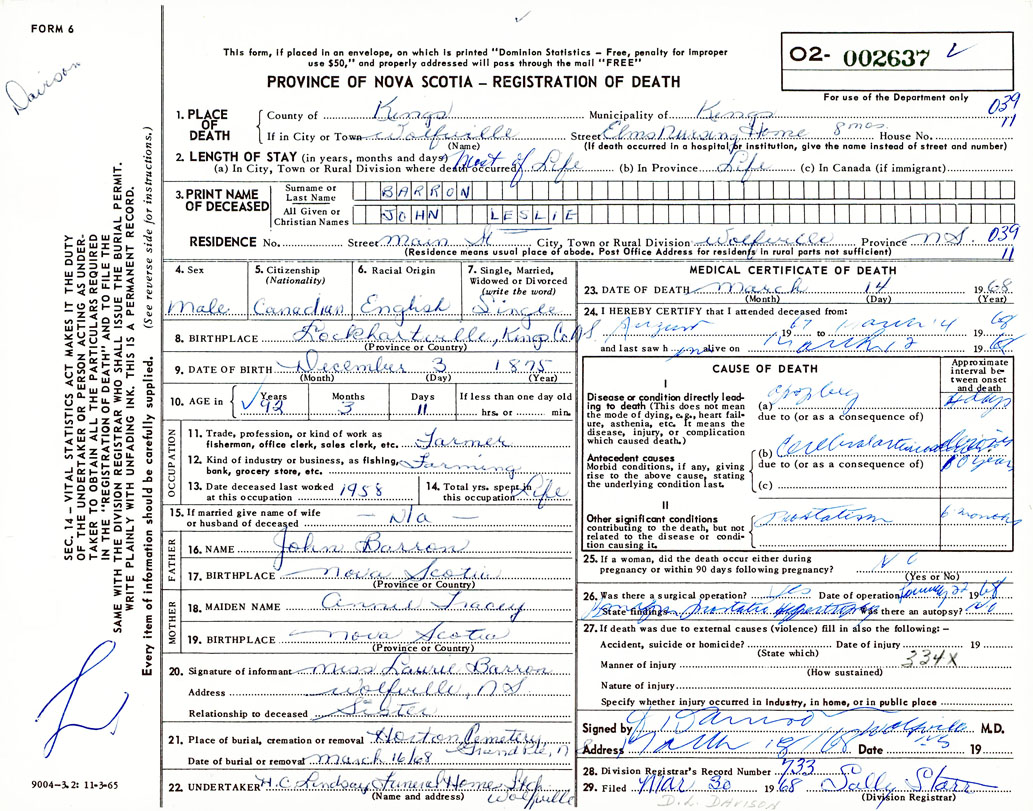 FORM 6
Davison
This form, if placed in an envelope, on which is printed "Dominion Statistics – Free, penalty for improper
use $50," and properly addressed will pass through the mail "FREE"
PROVINCE OF NOVA SCOTIA – REGISTRATION OF DEATH
02- 002637
For use of the Department only
039
11
1. PLACE OF DEATH
County of Kings Municipality of Kings
If in City or Town Wolfville Street Elms Nursing Home 8 mos House No.
(Name) (If death occurred in a hospital or institution, give the name instead of street and number)
2. LENGTH OF STAY (in years, months and days)
(a) In City, Town or Rural Division where death occurred Most of Life (b) In Province Life (c) In Canada (if immigrant)
3. PRINT NAME OF DECEASED
Surname or Last Name BARRON
All Given or Christian Names JOHN LESLIE
RESIDENCE No. Street Main St City, Town or Rural Division Wolfville Province N.S. 039
(Residence means usual place of abode. Post Office Address for residents in rural parts not sufficient) 11
SEC. 14 – VITAL STATISTICS ACT MAKES IT THE DUTY
OF THE UNDERTAKER OR PERSON ACTING AS UNDER-
TAKER TO OBTAIN ALL THE PARTICULARS REQUIRED
IN THE "REGISTRATION OF DEATH" AND TO FILE THE
SAME WITH THE DIVISION REGISTRAR WHO SHALL ISSUE THE BURIAL PERMIT.
WRITE PLAINLY WITH UNFADING INK. THIS IS A PERMANENT RECORD.
Every item of information should be carefully supplied. (See reverse side for instructions.)
4. Sex
Male
5. Citizenship
(Nationality)
Canadian
6. Racial Origin
English
7. Single, Married,
Widowed or Divorced
(write the word)
Single
8. BIRTHPLACE Lockhartville, Kings Co N.S.
(Province or Country)
9. DATE OF BIRTH December 3 1875
(Month) (Day) (Year)
10. AGE in Years 92 Months 3 Days 11 If less than one day old
hrs. or min.
OCCUPATION
11. Trade, profession, or kind of work as
fisherman, office clerk, sales clerk, etc. Farmer
12. Kind of industry or business, as fishing,
bank, grocery store, etc. Farming
13. Date deceased last worked
at this occupation 1958
14. Total yrs. spent in
this occupation Life
15. If married give name of wife
or husband of deceased – N/a –
FATHER
16. NAME John Barron
17. BIRTHPLACE Nova Scotia
(Province or Country)
MOTHER
18. MAIDEN NAME Annie Tracey
19. BIRTHPLACE Nova Scotia
(Province or Country)
20. Signature of informant Miss Laurie Barron
Address Wolfville, NS
Relationship to deceased Sister
21. Place of burial, cremation or removal Horton Cemetery
Grand Pré, N
Date of burial or removal March 16/68
22. UNDERTAKER H.C. Lindsay Funeral Home
(Name and address) Wolfville
9004-3.2: 11-3-65
MEDICAL CERTIFICATE OF DEATH
23. DATE OF DEATH March 14 1968
(Month) (Day) (Year)
24. I HEREBY CERTIFY that I attended deceased from:
August 1967 to March 14 1968
and last saw him alive on March 12 1968
CAUSE OF DEATH
Approximate
interval be-
tween onset
and death
I
Disease or condition directly lead-
ing to death (This does not mean
the mode of dying, e.g., heart fail-
ure, asthenia, etc. It means the
disease, injury, or complication
which caused death.)
(a) apoplexy days
due to (or as a consequence of)
Antecedent causes
Morbid conditions, if any, giving
rise to the above cause, stating
the underlying condition last.
(b) 10 years
due to (or as a consequence of)
(c)
II
Other significant conditions
contributing to the death, but not
related to the disease or condi-
tion causing it.
prostatism 6 months
25. If a woman, did the death occur either during
pregnancy or within 90 days following pregnancy? NO
(Yes or No)
26. Was there a surgical operation? Yes Date of operation January 22 1968
State findings prostatic hypertrophy Was there an autopsy? No
27. If death was due to external causes (violence) fill in also the following: –
Accident, suicide or homicide? Date of injury 19
(State which)
Manner of injury 334X
(How sustained)
Nature of injury
Specify whether injury occurred in industry, in home, or in public place
Signed by Wolfville M.D.
Address NS Date 19
28. Division Registrar's Record Number 733
29. Filed Mar 30 1968 Sally Starr
(Division Registrar)
D.L. DAVISON